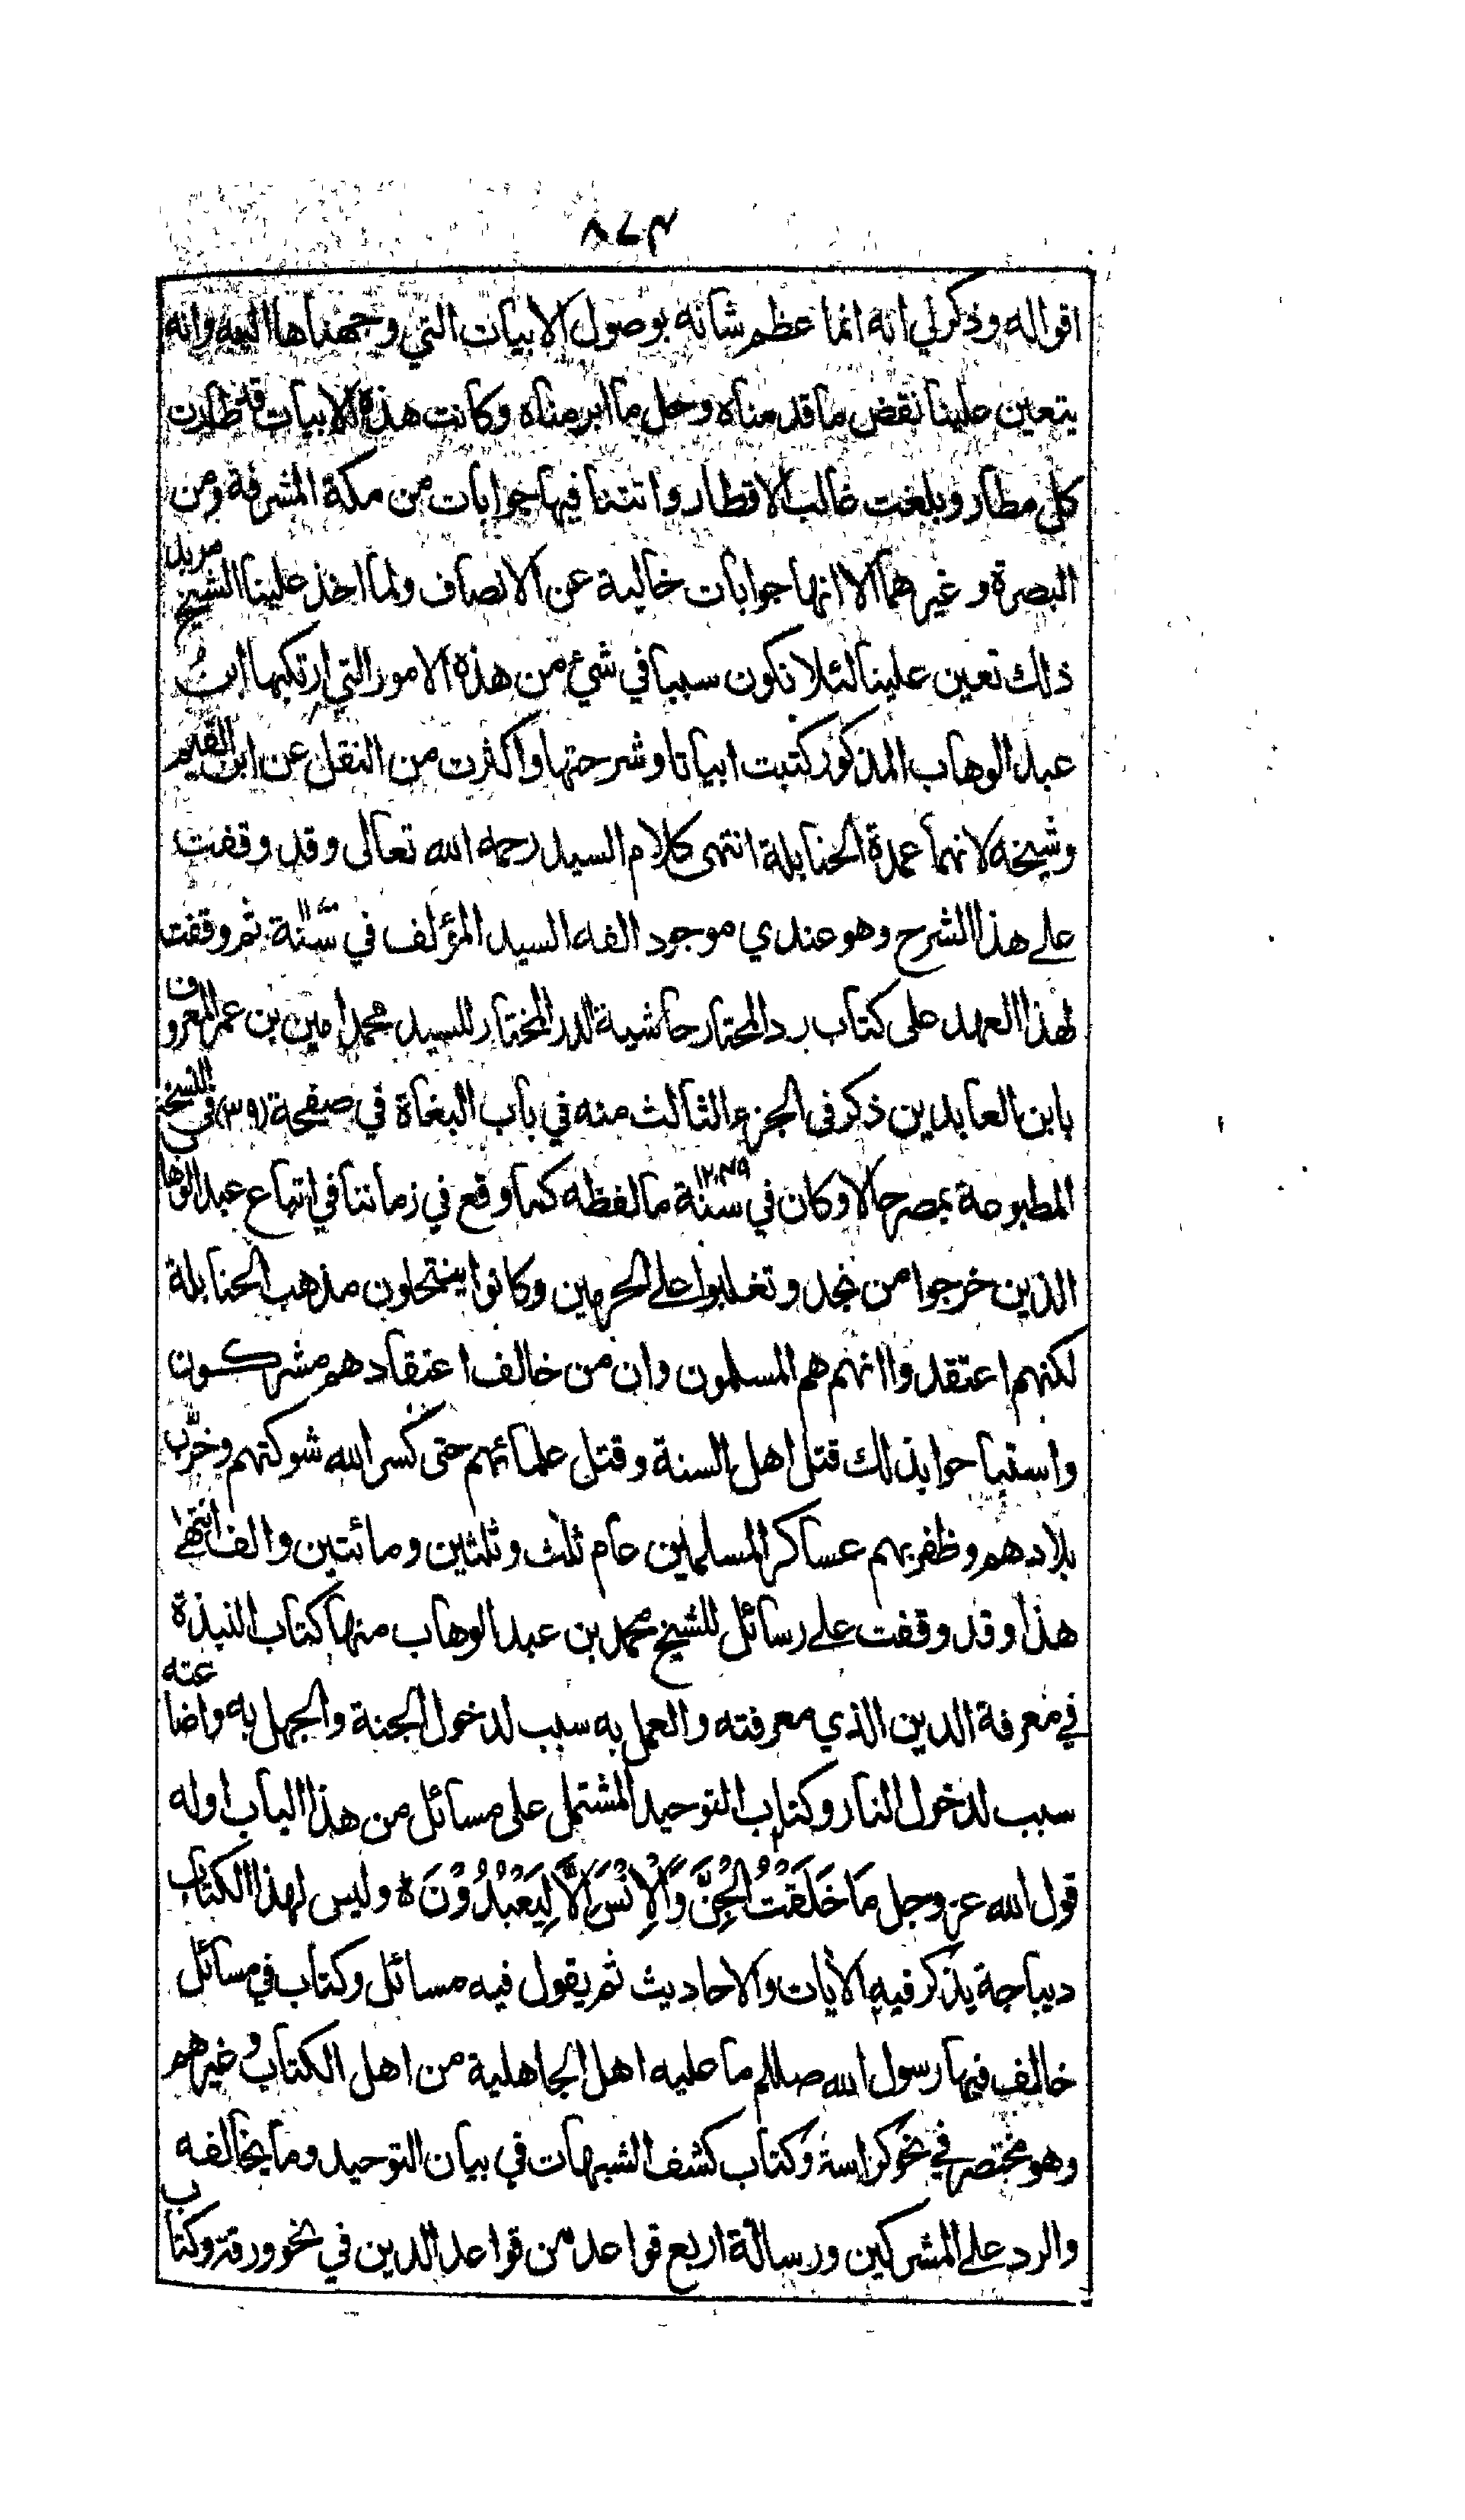 ٨٧٣
اقواله وذكر لي انه انما عظم شانه بوصول الابيات التي وجهناها اليه وانه
يتعين علينا نقض ما قدمناه وحل ما ابرمناه وكانت هذه الابيات قد طارت
كل مطار وبلغت غالب الاقطار واتتنا فيها جوابات من مكة المشرفة ومن
البصرة وغيرهما الا انها جوابات خالية عن الانصاف ولما اخذ علينا الشيخ مربد
ذلك تعين علينا لئلا نكون سببا في شئ من هذه الامور التي ارتكبها ابن
عبد الوهاب المذكور كتبت ابياتا وشرحتها واكثرت من النقل عن ابن القيم
وشيخه لانهما عمدة الحنابلة انتهى كلام السيد رحمه الله تعالى وقد وقفت
على هذا الشرح وهو عندي موجود الفه السيد المؤلف في سنة ثم وقفت
لهذا العهد على كتاب رد المحتار حاشية الدر المختار للسيد محمد امين بن عمر المعروف
بابن العابدين ذكر فى الجزء الثالث منه في باب البغاة في صفحة (٣٠٩) في النسخة
المطبوعة بمصر حالا وكان في سنة ١٢٤٩ ما لفظه كما وقع في زماننا في اتباع عبد الوهاب
الذين خرجوا من نجد وتغلبوا على الحرمين وكانوا ينتحلون مذهب الحنابلة
لكنهم اعتقدوا انهم هم المسلمون وان من خالف اعتقادهم مشركون
واستباحوا بذلك قتل اهل السنة وقتل علمائهم حتى كسر الله شوكتهم وخرّب
بلادهم وظفر بهم عساكر المسلمين عام ثلث وثلثين ومائتين والف انتهى
هذا وقد وقفت على رسائل للشيخ محمد بن عبد الوهاب منها كتاب النبذة
في معرفة الدين الذي معرفته والعمل به سبب لدخول الجنة والجهل به واضاعته
سبب لدخول النار وكتاب التوحيد المشتمل على مسائل من هذا الباب اوله
قول الله عز وجل مَا خَلَقْتُ الْجِنَّ وَالْاِنْسَ اِلَّا لِيَعْبُدُوْنَ ه وليس لهذا الكتاب
ديباجة يذكر فيه الآيات والاحاديث ثم يقول فيه مسائل وكتاب في مسائل
خالف فيها رسول الله صللم ما عليه اهل الجاهلية من اهل الكتاب وغيرهم
وهو مختصر في نحو كراسة وكتاب كشف الشبهات في بيان التوحيد وما يخالفه
والرد على المشركين ورسالة اربع قواعد من قواعد الدين في نحو ورقة وكتاب